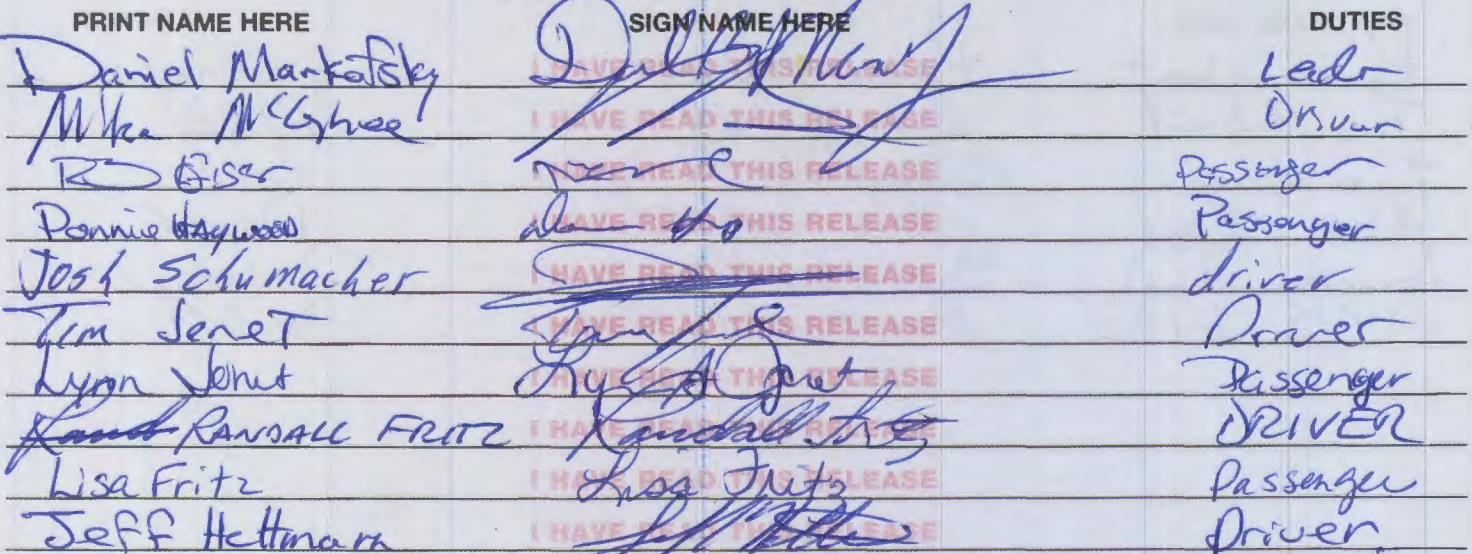 PRINT NAME HERE SIGN NAME HERE DUTIES
Daniel Markofsky I HAVE READ THIS RELEASE Leadr
Mike McGhee I HAVE READ THIS RELEASE Driver
I HAVE READ THIS RELEASE Passenger
Donnie HAYWOOD I HAVE READ THIS RELEASE Passenger
Josh Schumacher I HAVE READ THIS RELEASE driver
Tim JeneT I HAVE READ THIS RELEASE Driver
Lynn Jenet I HAVE READ THIS RELEASE Passenger
RANDALL FRITZ I HAVE READ THIS RELEASE Randall Fritz DRIVER
Lisa Fritz I HAVE READ THIS RELEASE Lisa Fritz Passenger
Jeff Hettmann I HAVE READ THIS RELEASE Driver